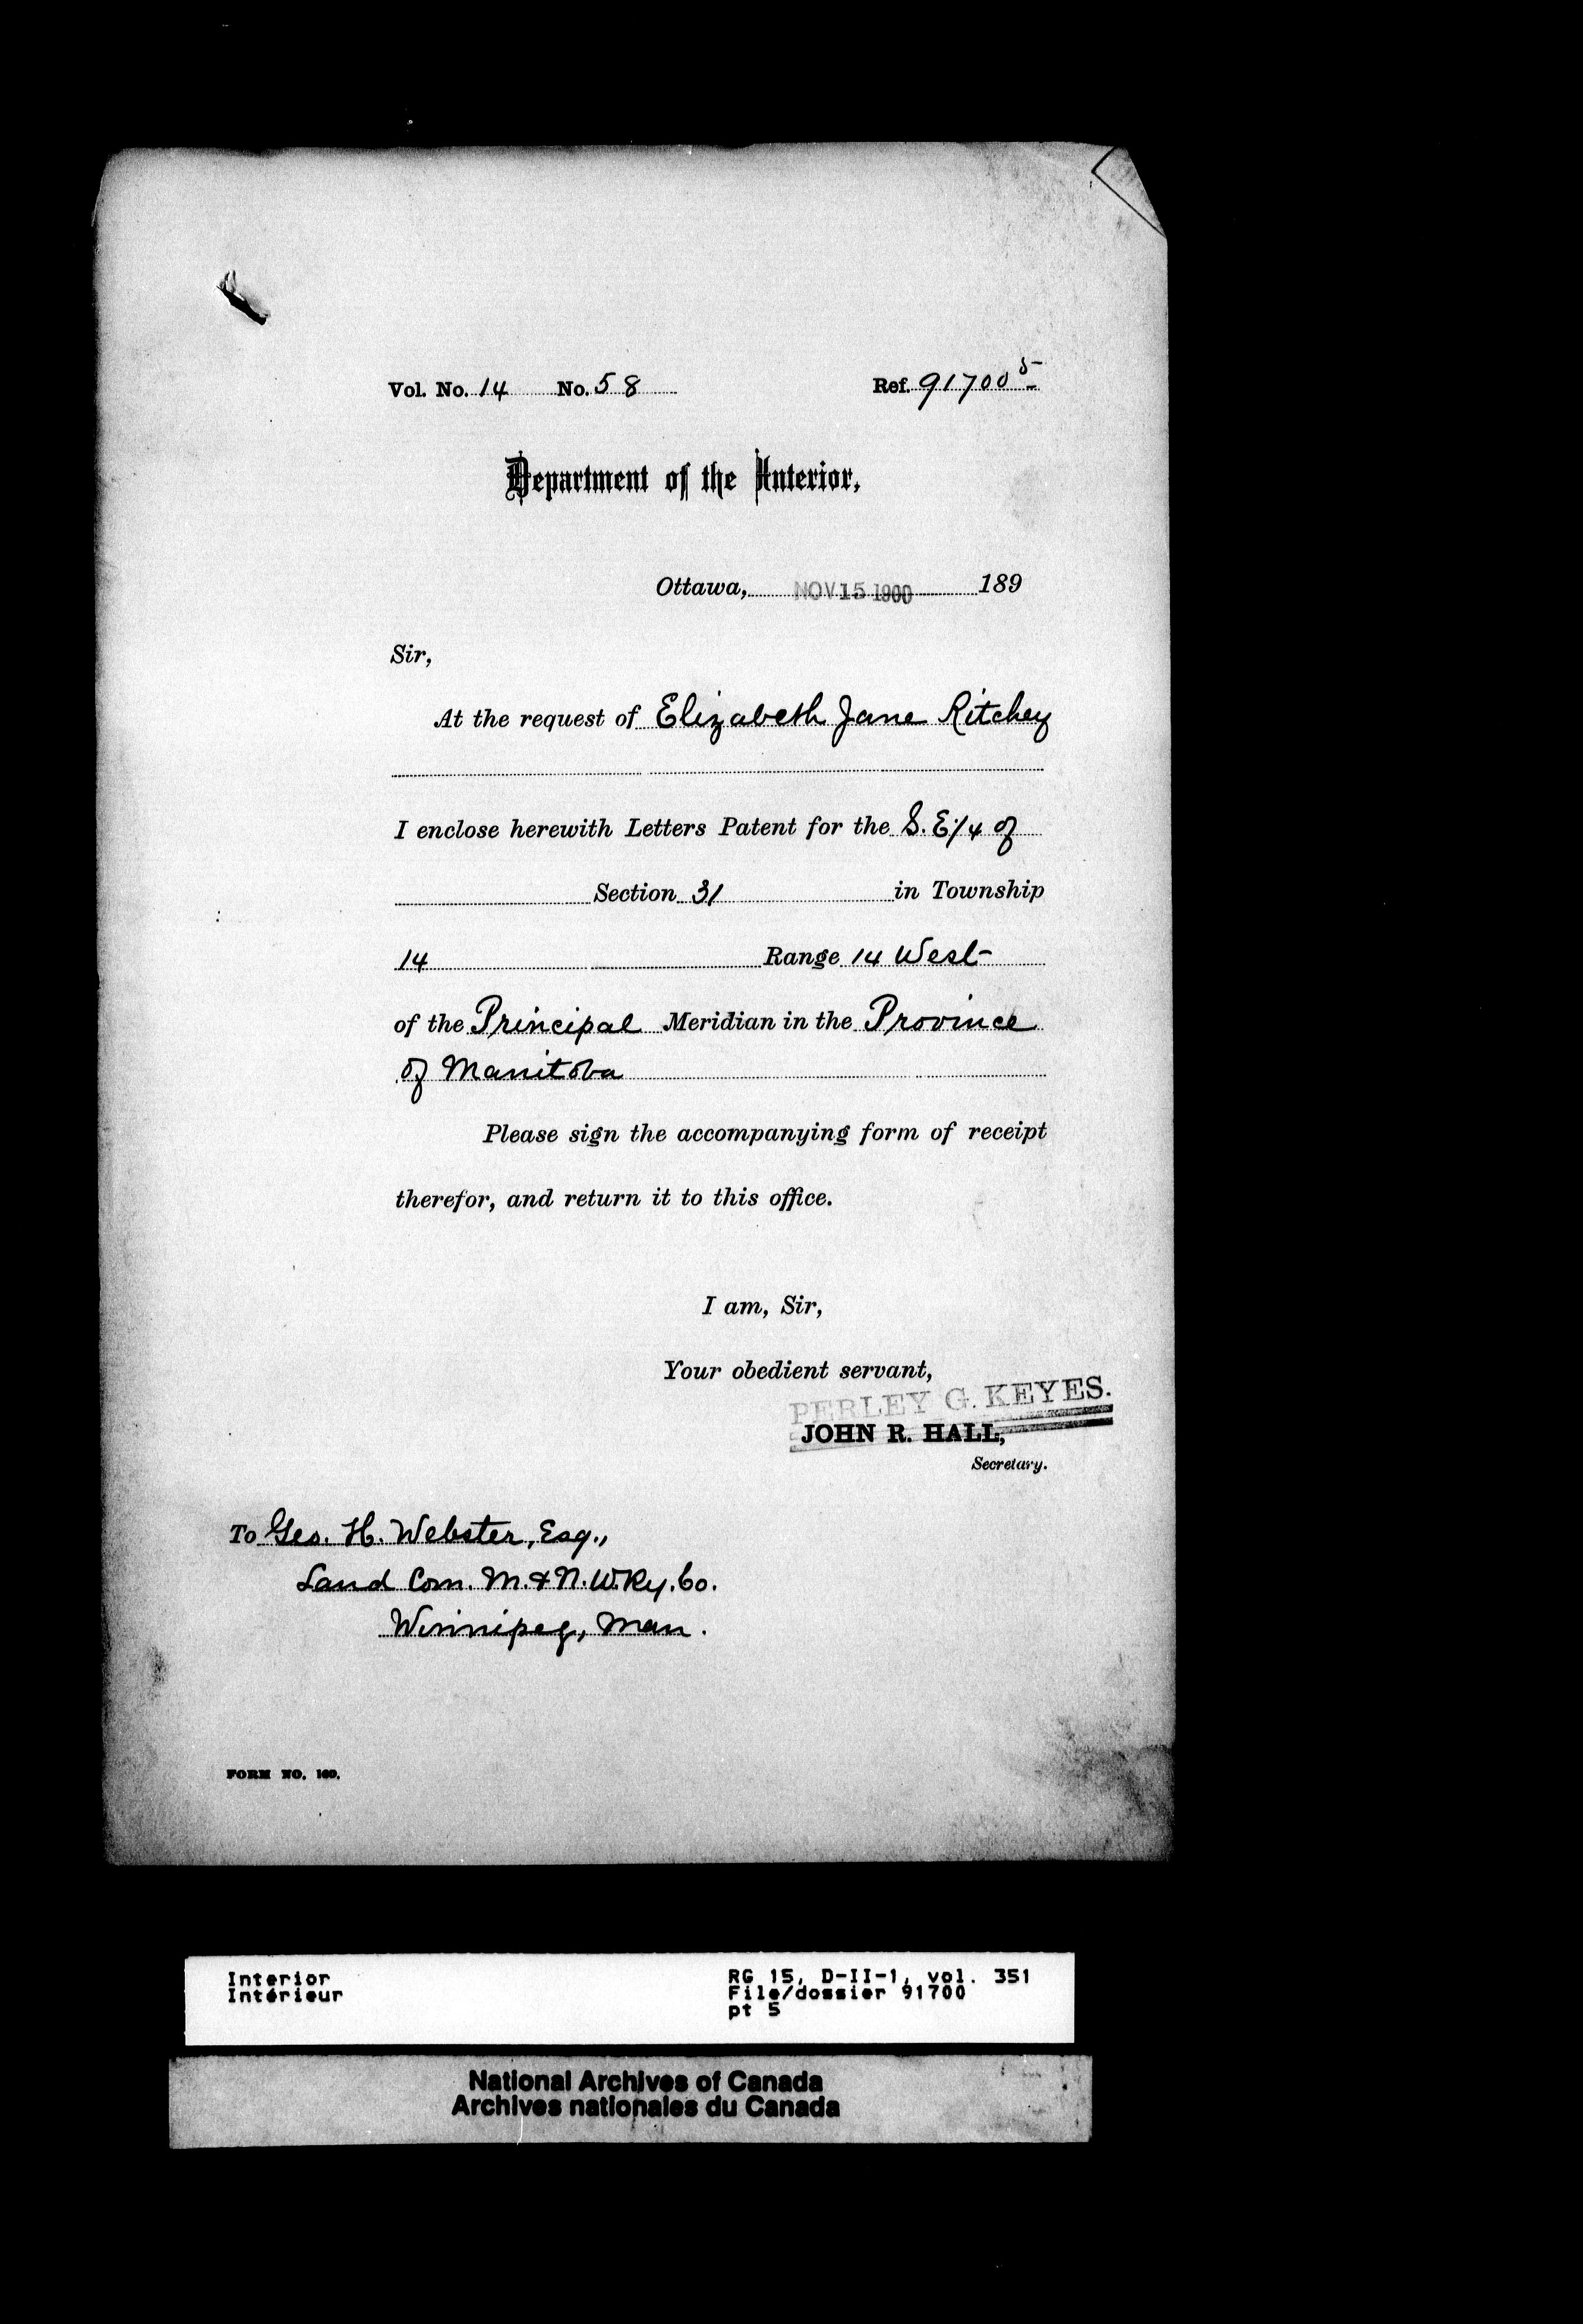 Vol. No. 14 No. 58 Ref. 91700 5
Department of the Interior,
Ottawa, NOV 15 1900 189
Sir,
At the request of Elizabeth Jane Ritchey
I enclose herewith Letters Patent for the S.E.1/4 of
Section 31 in Township
14 Range 14 West
of the Principal Meridian in the Province
of Manitoba
Please sign the accompanying form of receipt
therefor, and return it to this office.
I am, Sir,
Your obedient servant,
PERLEY G. KEYES.
JOHN R. HALL,
Secretary.
To Geo. H. Webster, Esq.,
Land Com. M. & N. W. Ry. Co.
Winnipeg, Man.
FORM NO. 160.
Interior RG 15, D-II-1, vol. 351
Intérieur File/dossier 91700
pt 5
National Archives of Canada
Archives nationales du Canada